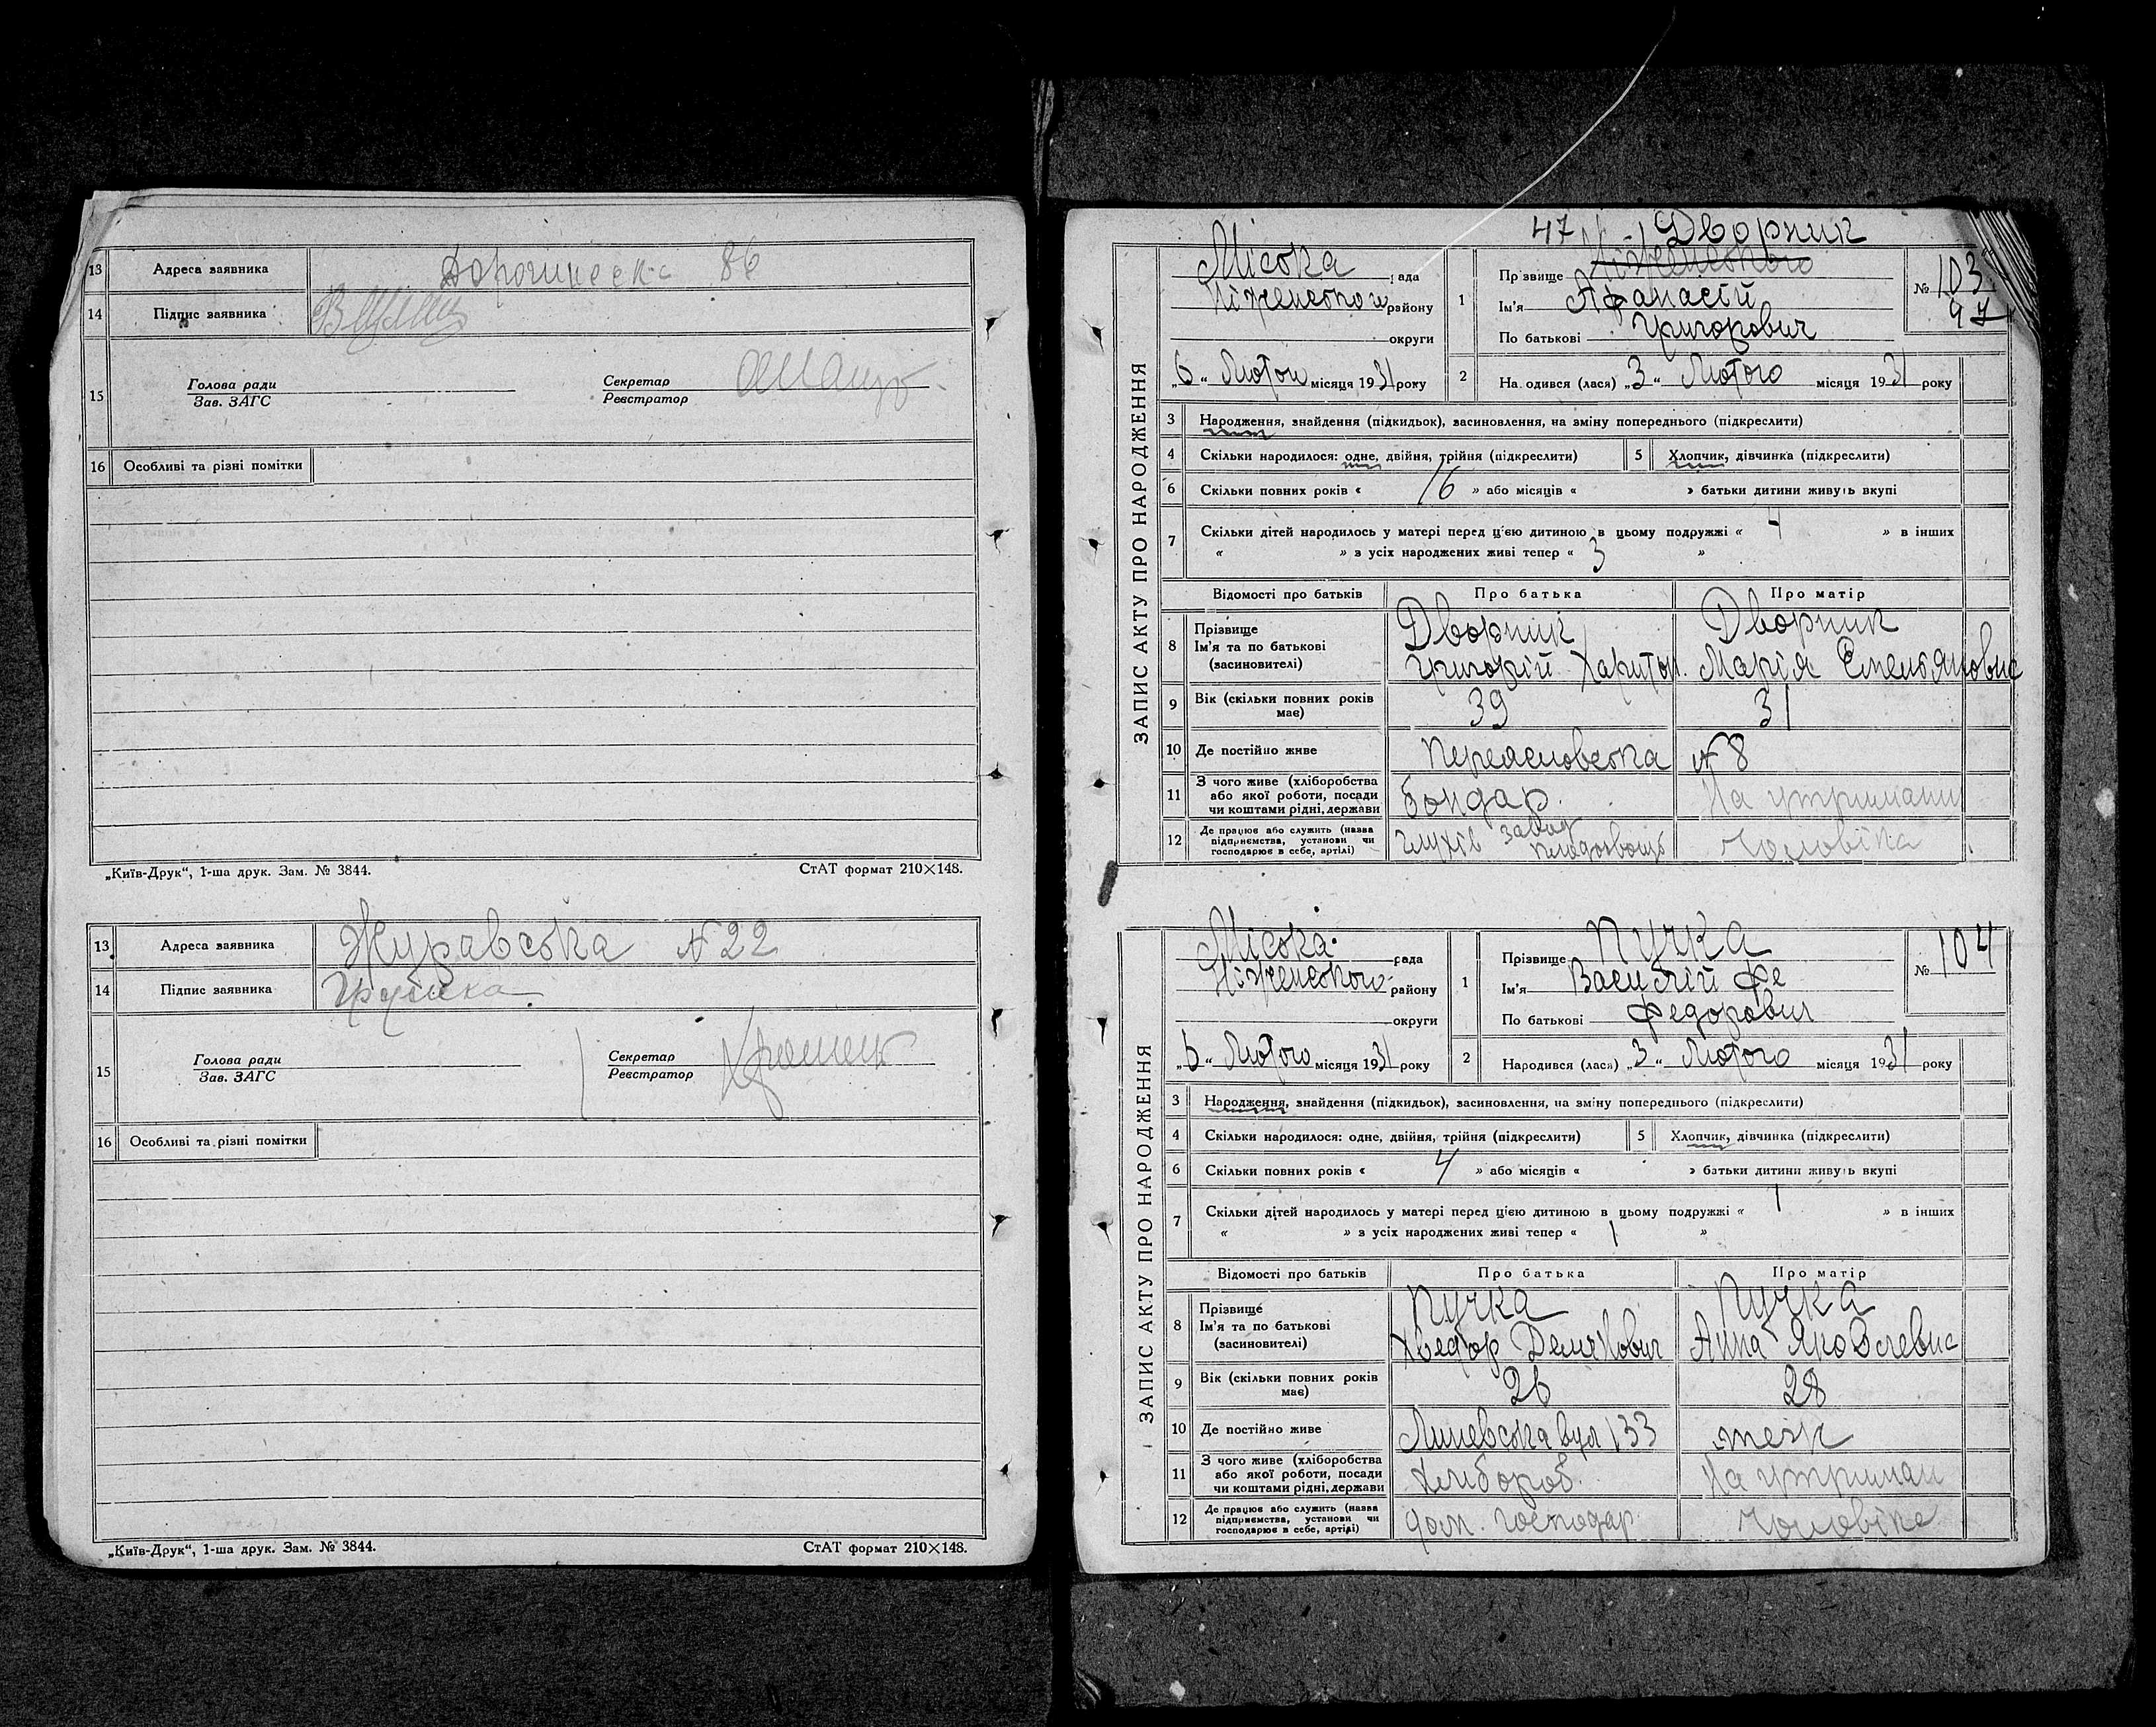 13 Адреса заявника 86
14 Підпис заявника
15 Голова ради
Зав. ЗАГС
Секретар
Реєстратор
16 Особливі та різні помітки
„Київ-Друк“, 1-ша друк. Зам. № 3844. СтАТ формат 210×148.
13 Адреса заявника Журавська № 22
14 Підпис заявника
15 Голова ради
Зав. ЗАГС
Секретар
Реєстратор
16 Особливі та різні помітки
„Київ-Друк“, 1-ша друк. Зам. № 3844. СтАТ формат 210×148.
47 Дворник
ЗАПИС АКТУ ПРО НАРОДЖЕННЯ
Міська рада
Ніженського району
округи
„6“ Лютого місяця 1931 року
1 Прізвище
Ім'я Афанасій
По батькові Григорович
№ 103
97
2 Народився (лася) „3“ Лютого місяця 1931 року
3 Народження, знайдення (підкидьок), засиновлення, на зміну попереднього (підкреслити)
4 Скільки народилося: одне, двійня, трійня (підкреслити) 5 Хлопчик, дівчинка (підкреслити)
6 Скільки повних років « 16 » або місяців « » батьки дитини живуть вкупі
7 Скільки дітей народилось у матері перед цією дитиною в цьому подружжі « 4 » в інших
« » з усіх народжених живі тепер « 3 »
Відомості про батьків Про батька Про матір
8 Прізвище Дворник Дворник
Ім'я та по батькові Григорій Харитон. Марія Емельяновна
(засиновителі)
9 Вік (скільки повних років має) 39 31
10 Де постійно живе № 8
11 З чого живе (хліборобства
або якої роботи, посади
чи коштами рідні, держави Бондар. На утриманні
12 Де працює або служить (назва
підприємства, установи чи
господарює в себе, артілі) завод Чоловіка
ЗАПИС АКТУ ПРО НАРОДЖЕННЯ
Міська рада
Ніженського району
округи
„6“ Лютого місяця 1931 року
1 Прізвище Пучка
Ім'я Василій Фе
По батькові Федорович
№ 104
2 Народився (лася) „3“ Лютого місяця 1931 року
3 Народження, знайдення (підкидьок), засиновлення, на зміну попереднього (підкреслити)
4 Скільки народилося: одне, двійня, трійня (підкреслити) 5 Хлопчик, дівчинка (підкреслити)
6 Скільки повних років « 4 » або місяців « » батьки дитини живуть вкупі
7 Скільки дітей народилось у матері перед цією дитиною в цьому подружжі « 1 » в інших
« » з усіх народжених живі тепер « 1 »
Відомості про батьків Про батька Про матір
8 Прізвище Пучка Пучка
Ім'я та по батькові Хведор Анна Яковлевна
(засиновителі)
9 Вік (скільки повних років має) 26 28
10 Де постійно живе вул 133
11 З чого живе (хліборобства
або якої роботи, посади
чи коштами рідні, держави Хлибороб. На утриман
12 Де працює або служить (назва
підприємства, установи чи
господарює в себе, артілі) дом. господар Чоловіка